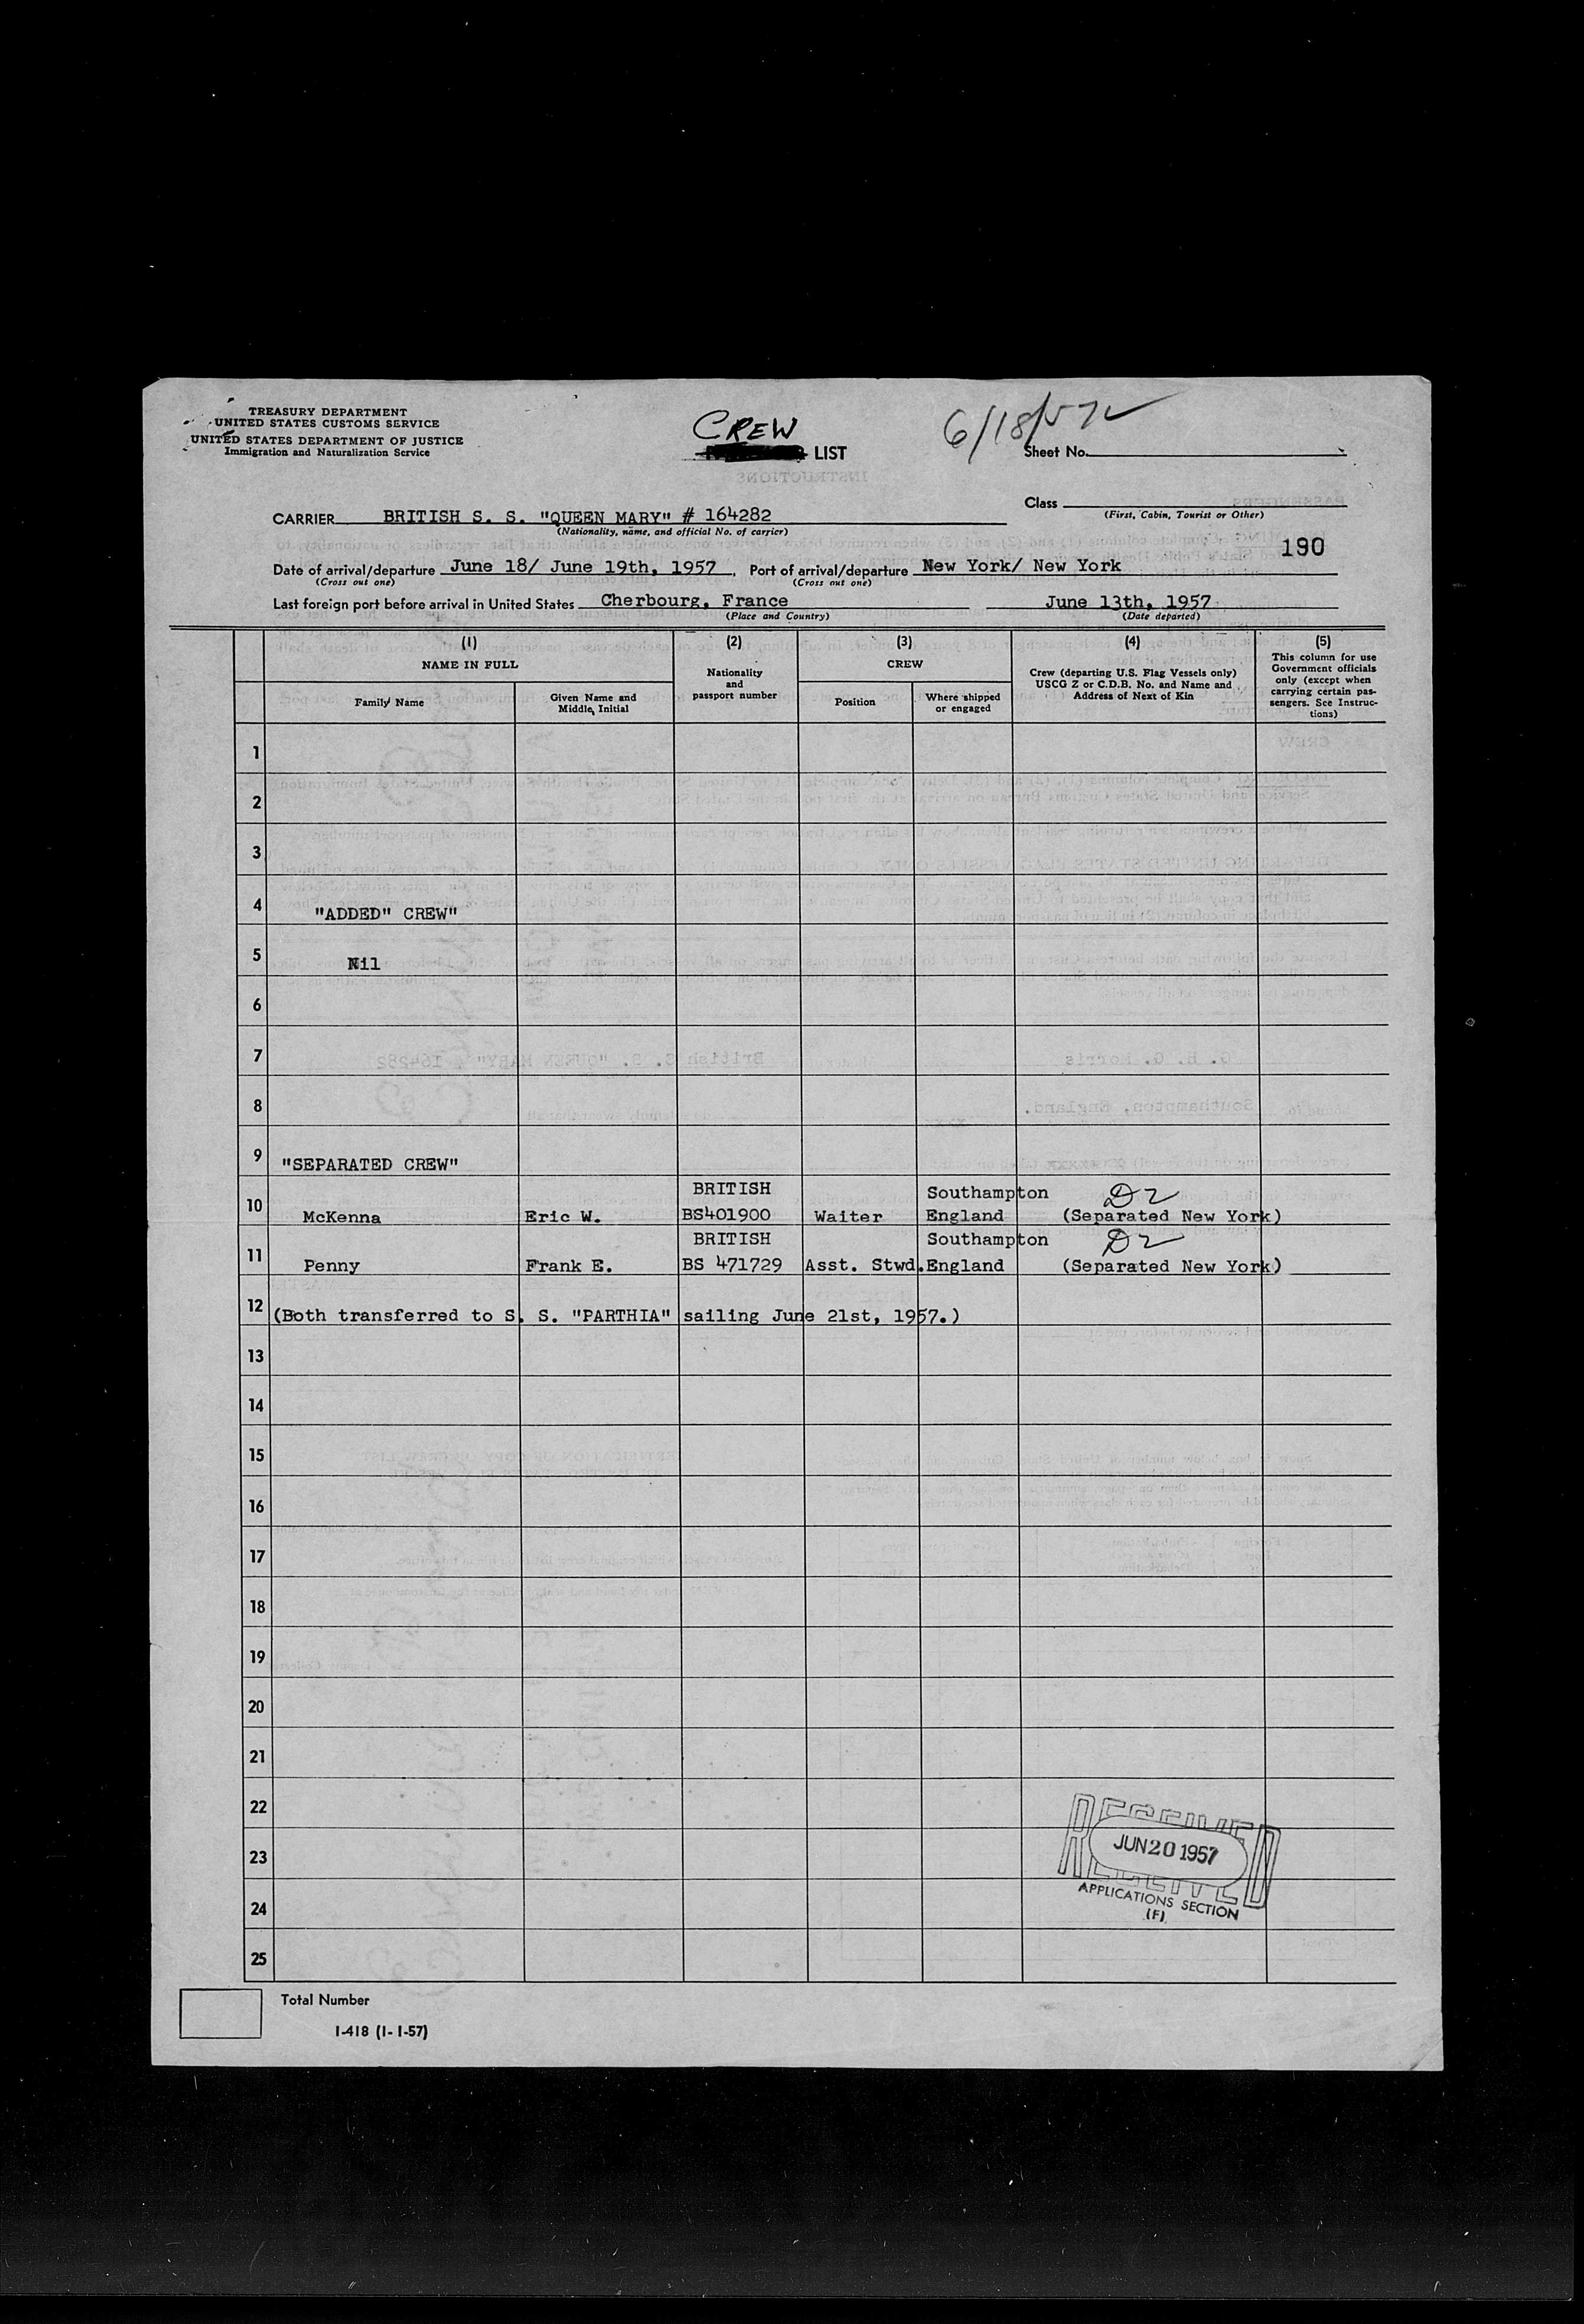 TREASURY DEPARTMENT
UNITED STATES CUSTOMS SERVICE
UNITED STATES DEPARTMENT OF JUSTICE
Immigration and Naturalization Service
CREW
LIST
6/18/57
Sheet No.
CARRIER BRITISH S. S. "QUEEN MARY" # 164282
(Nationality, name, and official No. of carrier)
Class
(First, Cabin, Tourist or Other)
190
Date of arrival/departure June 18/ June 19th, 1957, Port of arrival/departure New York/ New York
(Cross out one) (Cross out one)
Last foreign port before arrival in United States Cherbourg, France June 13th, 1957
(Place and Country) (Date departed)
(1) (2) (3) (4) (5)
NAME IN FULL
Family Name
Given Name and
Middle Initial
Nationality
and
passport number
CREW
Position
Where shipped
or engaged
Crew (departing U.S. Flag Vessels only)
USCG Z or C.D.B. No. and Name and
Address of Next of Kin
This column for use
Government officials
only (except when
carrying certain pas-
sengers. See Instruc-
tions)
1
2
3
4 "ADDED" CREW"
5 Nil
6
7
8
9 "SEPARATED CREW"
BRITISH Southampton D2
10 McKenna Eric W. BS401900 Waiter England (Separated New York)
BRITISH Southampton D2
11 Penny Frank E. BS 471729 Asst. Stwd. England (Separated New York)
12 (Both transferred to S. S. "PARTHIA" sailing June 21st, 1957.)
13
14
15
16
17
18
19
20
21
22
23
24
25
RECEIVED
JUN 20 1957
RECEIVED
APPLICATIONS SECTION
(F)
Total Number
I-418 (1-1-57)